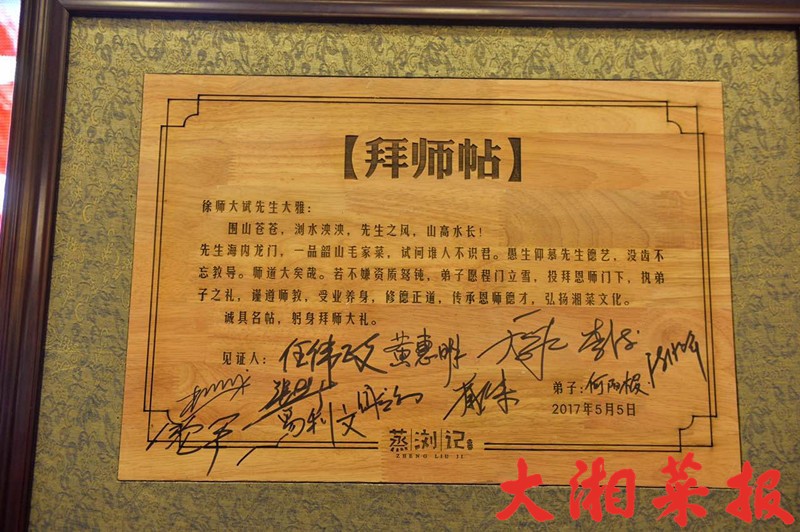 【拜师帖】
徐师大斌先生大雅：
围山苍苍，浏水泱泱，先生之风，山高水长！
先生海内龙门，一品韶山毛家菜，试问谁人不识君。愚生仰慕先生德艺，没齿不
忘教导。师道大矣哉。若不嫌资质驽钝，弟子愿程门立雪，投拜恩师门下，执弟
子之礼，谨遵师教，受业养身，修德正道，传承恩师德才，弘扬湘菜文化。
诚具名帖，躬身拜师大礼。
见证人：任伟政 黄惠明
弟子：
2017年5月5日
蒸浏记
ZHENG LIU JI
大湘菜报